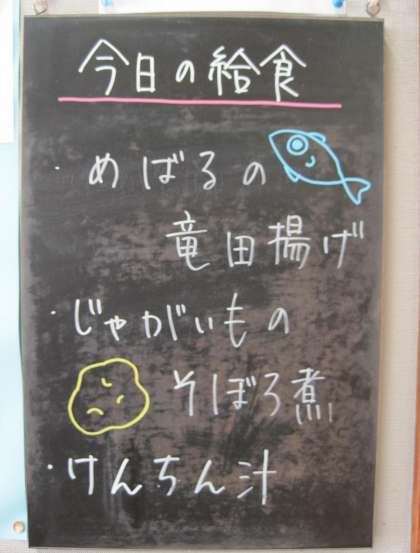 今日の給食
・めばるの
竜田揚げ
・じゃがいもの
そぼろ煮
・けんちん汁